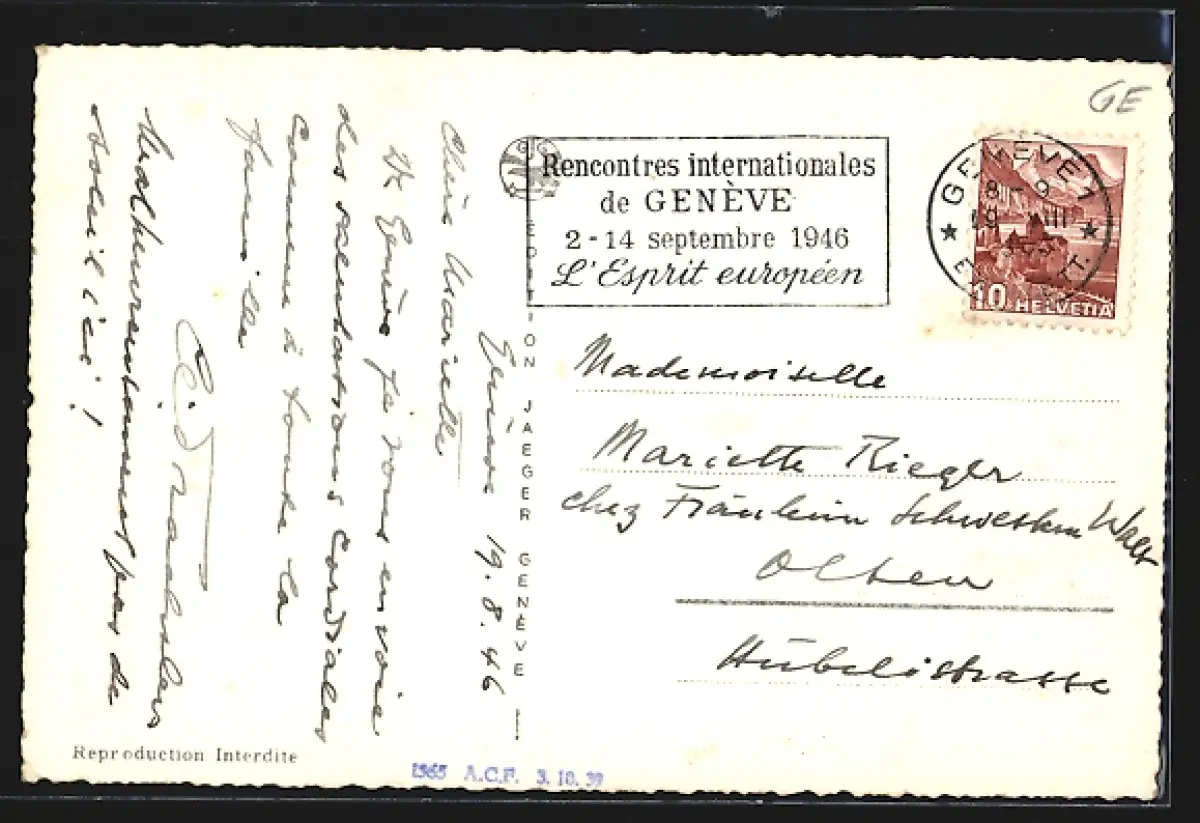 GE
Rencontres internationales
de GENÈVE
2-14 septembre 1946
L'Esprit européen
GENÈVE 1
8-9
19 VIII
10 HELVETIA
EDITION JAEGER GENÈVE
Genève 19.8.46
Chère Mariette
De Genève je vous envoie
des salutations cordiales
comme à toute la
famille
Malheureusement pas de
soleil ici!
Mademoiselle
Mariette Rieger
chez Fräulein Schwestern
Olten
Hübelistrasse
Reproduction Interdite
1565 A.C.F. 3.10.39